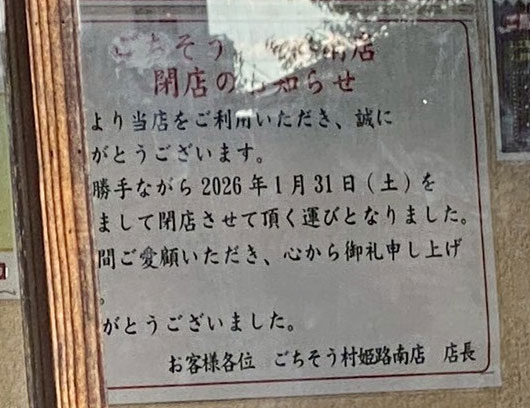 ごちそう 南店
閉店のお知らせ
より当店をご利用いただき、誠に
がとうございます。
勝手ながら2026年1月31日(土)を
まして閉店させて頂く運びとなりました。
間ご愛顧いただき、心から御礼申し上げ
。
がとうございました。
お客様各位 ごちそう村姫路南店 店長